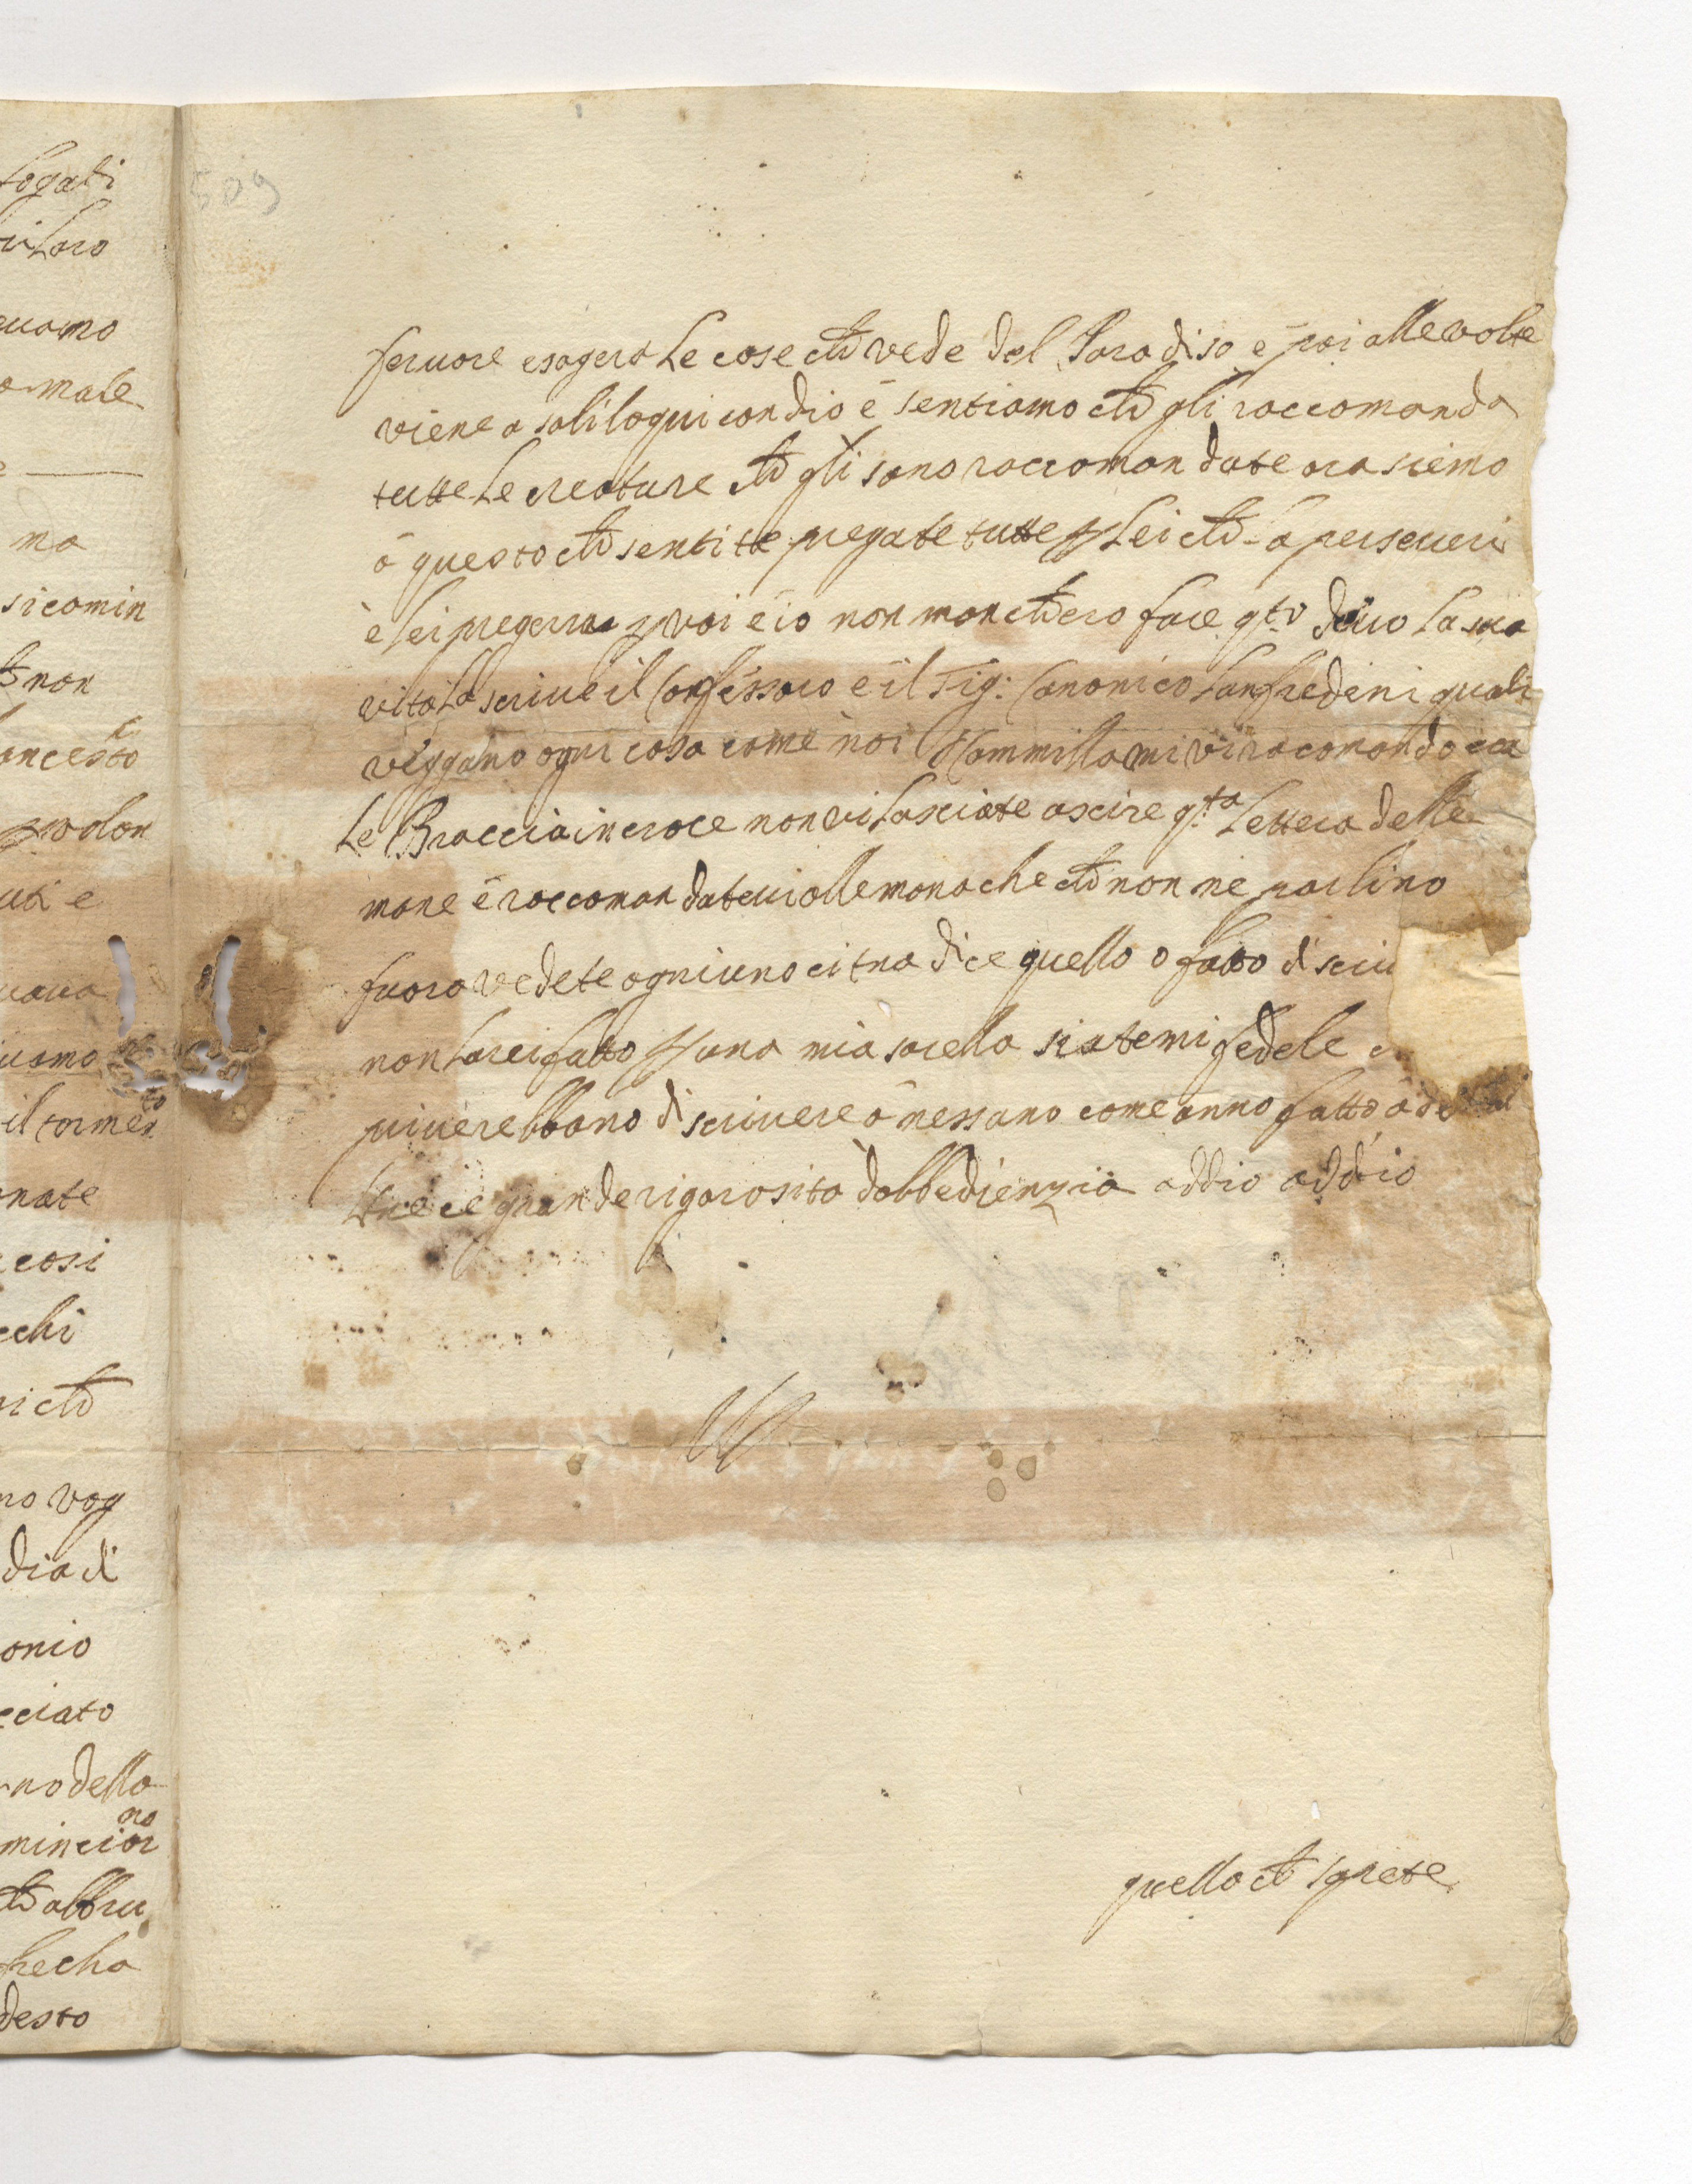 509
fogati
Loro
uamo
male
ma
si comin
non
ancesto
volon
uti e
uaua
uamo
il torme
nate
cosi
cchi
ni ch
no vog
dia di
onio
cciato
no della
mincior
no
ch abbru
hecha
desto
feruore esagera Le cose ch vede del Paradiso e poi alle volte
viene a soliloqui con dio e sentiamo ch gli raccomanda
tutte Le creature ch gli sono raccomandate ora siemo
à questo ch sentitte pregate tutte p Lei ch la perseueri
è Lei pregerra p voi e io non manchero fare qto deuo La sua
vita La scriue il Confessoro e il Sig: Canonico Lanfredini quali
veggano ogni cosa come noi Cammilla mi vi racomando
Le Braccia in croce non vi Lasciate ascire qta Lettera delle
mane e raccomandateui alle monache ch non ne parlino
fuora vedete ogniuno ci tra dice quello o fatto di
non Larei fatto p una mia sorella siatemi fedele
priuerebbano di scriuere a nessano come anno fatto
tre ce grande rigorosita dobbedienzia addio addio
quella ch sapete